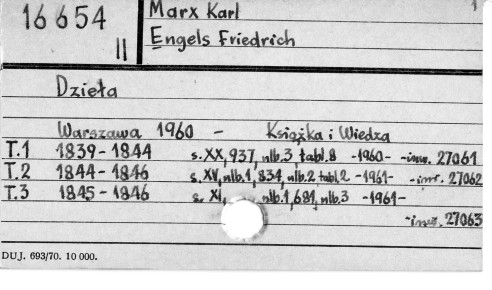 16654
II
Marx Karl 1
Engels Friedrich
Dzieła
Warszawa 1960 - Książka i Wiedza
T.1 1839-1844 s. XX, 937, nlb.3, tabl.8 -1960- -inw. 27061
T.2 1844-1846 s. XV, nlb.1, 834, nlb.2 tabl.2 -1961- -inw. 27062
T.3 1845-1846 s. XI, nlb.1, 681, nlb.3 -1961-
-inw. 27063
DUJ. 693/70. 10 000.